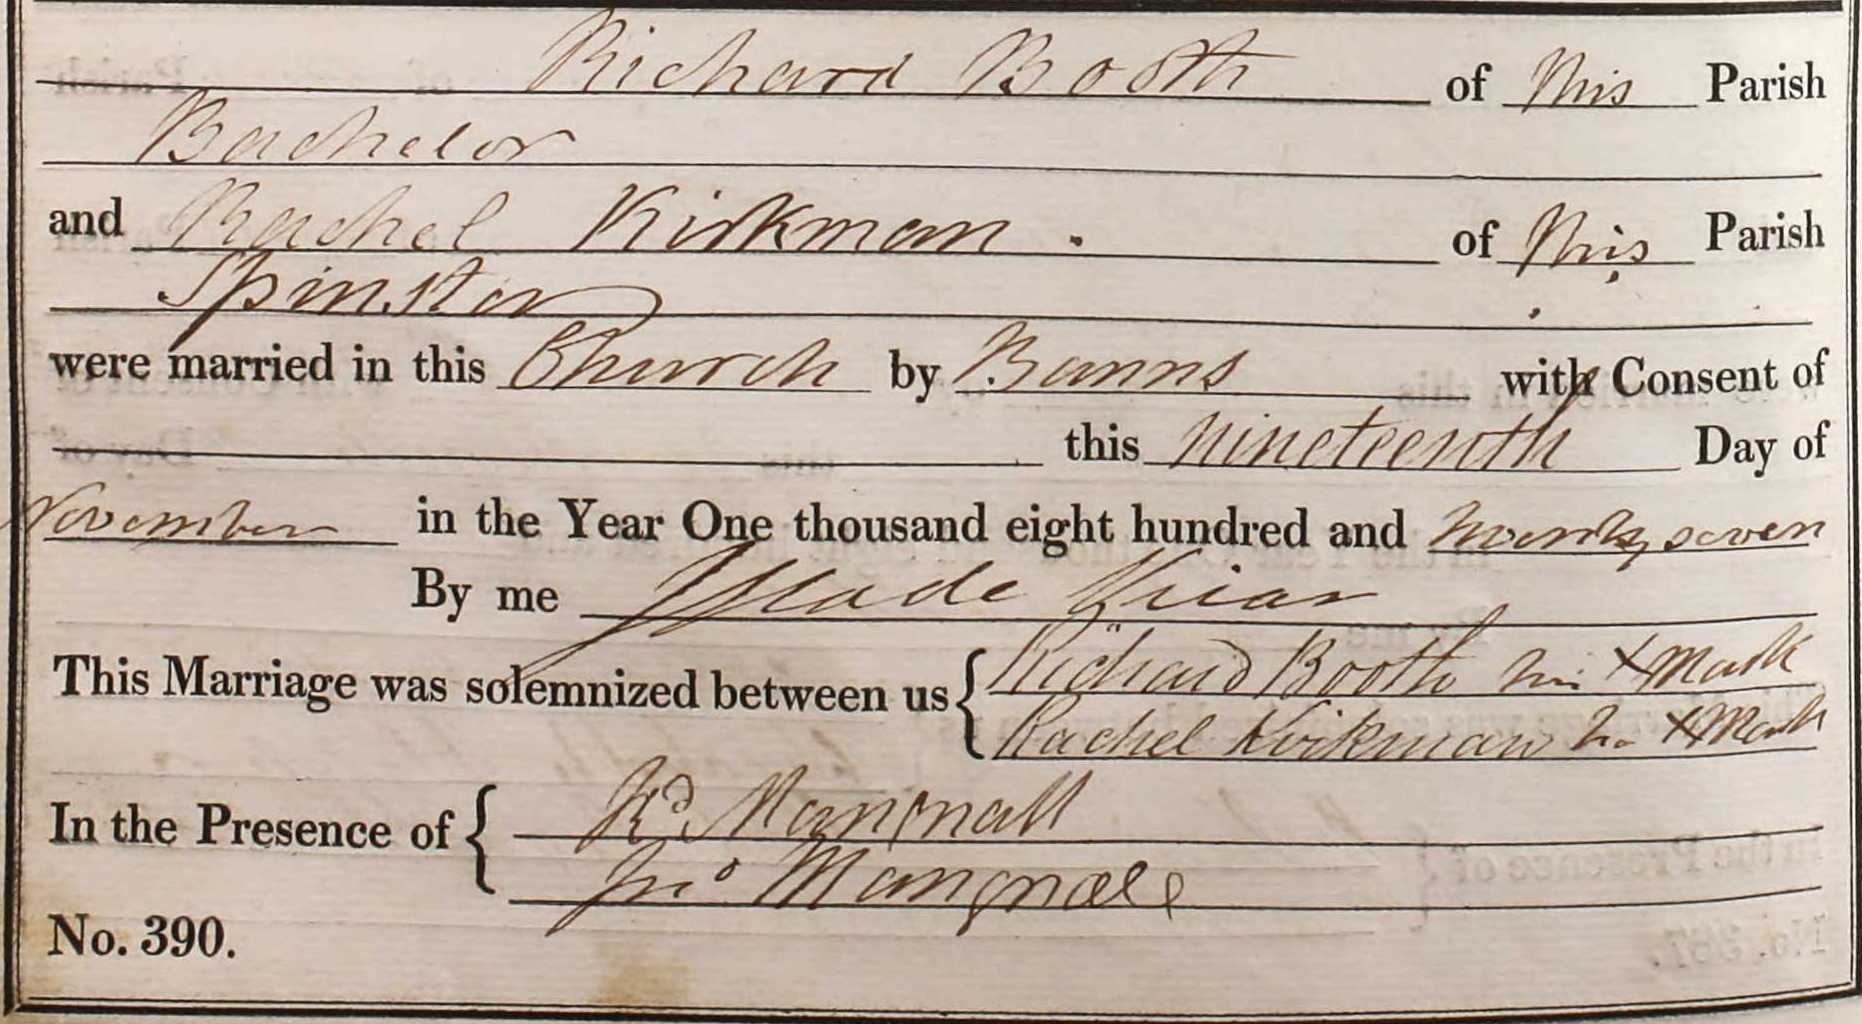 Richard Booth of this Parish
Bachelor
and Rachel Kirkman . of this Parish
Spinster
were married in this Church by Banns with Consent of
this nineteenth Day of
November in the Year One thousand eight hundred and twenty seven
By me Slade Vicar
This Marriage was solemnized between us { Richard Booth his X Mark
Rachel Kirkman her X Mark
In the Presence of { Rd. Mangnall
Jno Mangnall
No. 390.